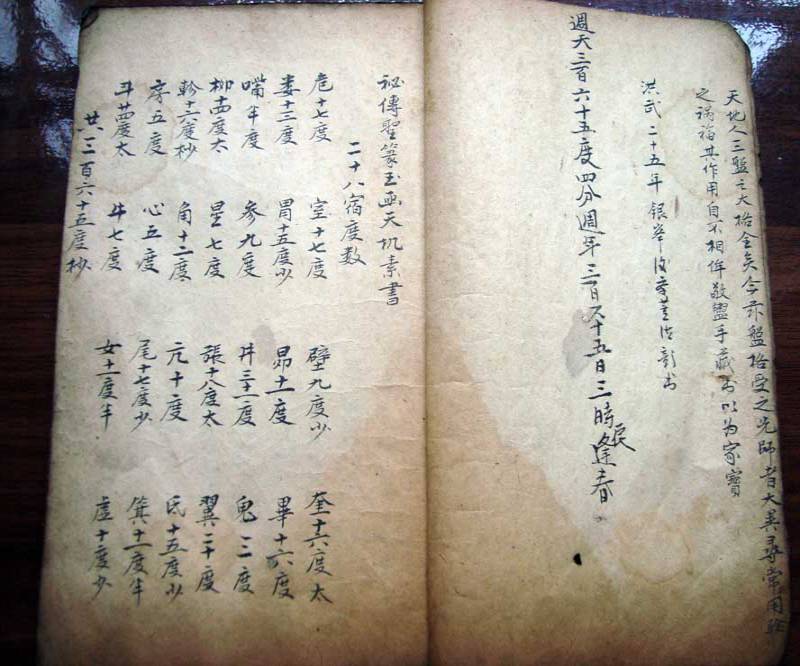 天地人三盤之大全矣今盤受之先師者大異尋常用驗
之禍福其作用自不相侔敬盥手藏书以为家寶
洪武二十五年銀峯董德彰书
週天三百六十五度四分週年三百六十五日三時辰逢春
秘傳聖篆玉函天机素書
二十八宿度数
危十七度 室十七度 壁九度少 奎十六度太
娄十三度 胃十五度少 昴十一度 畢十六度
嘴半度 参九度 井三十一度 鬼三度
柳十四度太 星七度 張十八度太 翼二十度
軫十六度杪 角十二度 亢十度 氐十五度少
房五度 心五度 尾十七度少 箕十一度半
斗廿四度太 牛七度 女十一度半 虚十度少
共三百六十五度杪